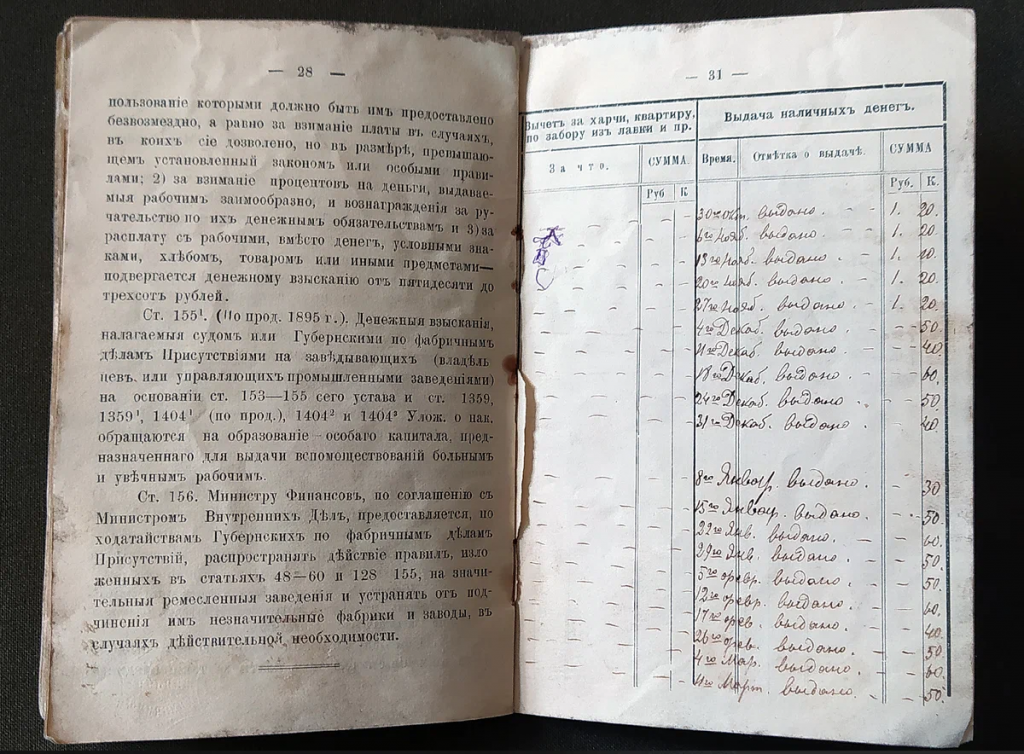 — 28 —
пользованіе которыми должно быть имъ предоставлено
безвозмездно, а равно за взиманіе платы въ случаяхъ,
въ коихъ сіе дозволено, но въ размѣрѣ, превышаю-
щемъ установленный закономъ или особыми прави-
лами; 2) за взиманіе процентовъ на деньги, выдавае-
мыя рабочимъ заимообразно, и вознагражденія за ру-
чательство по ихъ денежнымъ обязательствамъ и 3) за
расплату съ рабочими, вмѣсто денегъ, условными зна-
ками, хлѣбомъ, товаромъ или иными предметами—
подвергается денежному взысканію отъ пятидесяти до
трехсотъ рублей.
Ст. 155¹. (По прод. 1895 г.). Денежныя взысканія,
налагаемыя судомъ или Губернскими по фабричнымъ
дѣламъ Присутствіями на завѣдывающихъ (владѣль-
цевъ или управляющихъ промышленными заведеніями)
на основаніи ст. 153—155 сего устава и ст. 1359,
1359¹, 1404¹ (по прод.), 1404² и 1404³ Улож. о нак.
обращаются на образованіе особаго капитала, пред-
назначеннаго для выдачи вспомоществованій больнымъ
и увѣчнымъ рабочимъ.
Ст. 156. Министру Финансовъ, по соглашенію съ
Министромъ Внутреннихъ Дѣлъ, предоставляется, по
ходатайствамъ Губернскихъ по фабричнымъ дѣламъ
Присутствій, распространять дѣйствіе правилъ, изло-
женныхъ въ статьяхъ 48—60 и 128 155, на значи-
тельныя ремесленныя заведенія и устранять отъ под-
чиненія имъ незначительные фабрики и заводы, въ
случаяхъ дѣйствительной необходимости.
— 31 —
Вычетъ за харчи, квартиру,
по забору изъ лавки и пр.
Выдача наличныхъ денегъ.
За что. СУММА. Время. Отмѣтка о выдачѣ. СУММА
Руб К Руб. К.
30го Окт. выдано. 1. 20.
6го Нояб. выдано. 1. 20.
13го Нояб. выдано. 1. 20.
20го Нояб. выдано. 1. 20.
27го Нояб. выдано. 1. 20
4го Декаб. выдано. — 50.
11го Декаб. выдано. — 40.
18го Декаб. выдано. — 60.
24го Декаб. выдано. — 50.
31го Декаб. выдано. — 40.
8го Январ. выдано. — 30
15го Январ. выдано. — 50.
22го Янв. выдано. — 60.
29го Янв. выдано. — 50.
5го февр. выдано. — 50.
12го февр. выдано. — 60.
17го фев. выдано. — 40.
26го фев. выдано. — 50
4го Мар. выдано. — 60.
11го Март. выдано. — 50.